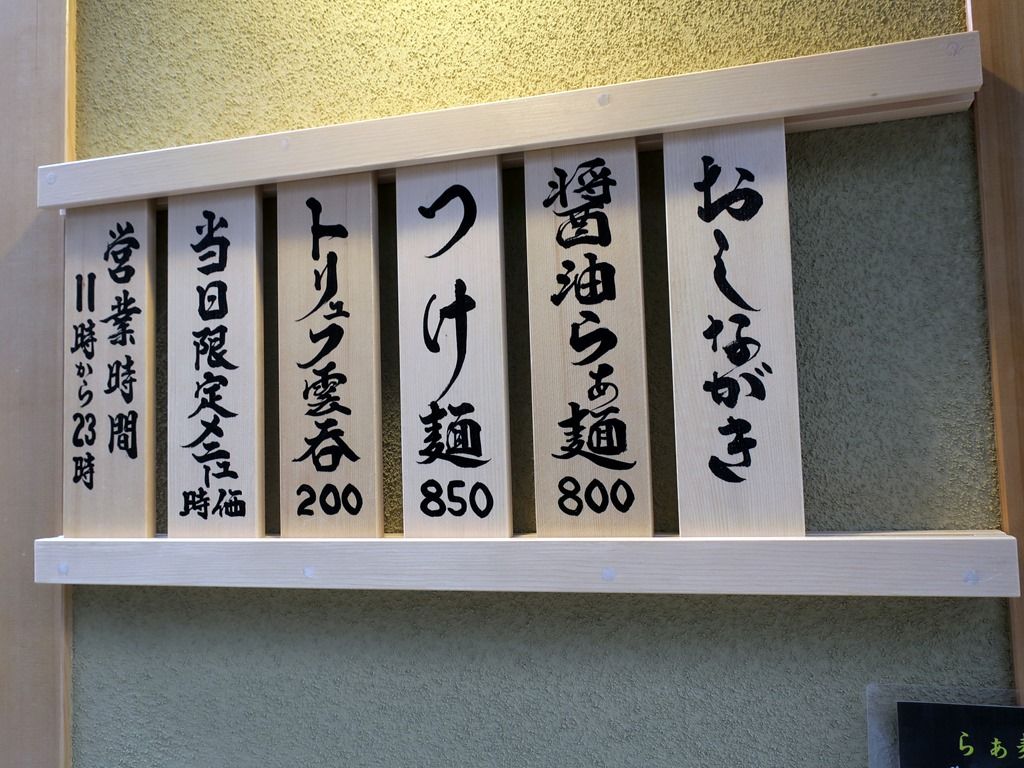 おしながき
醤油らぁ麺
800
つけ麺
850
トリュフ雲呑
200
当日限定メニュー
時価
営業時間
11時から23時
らぁ